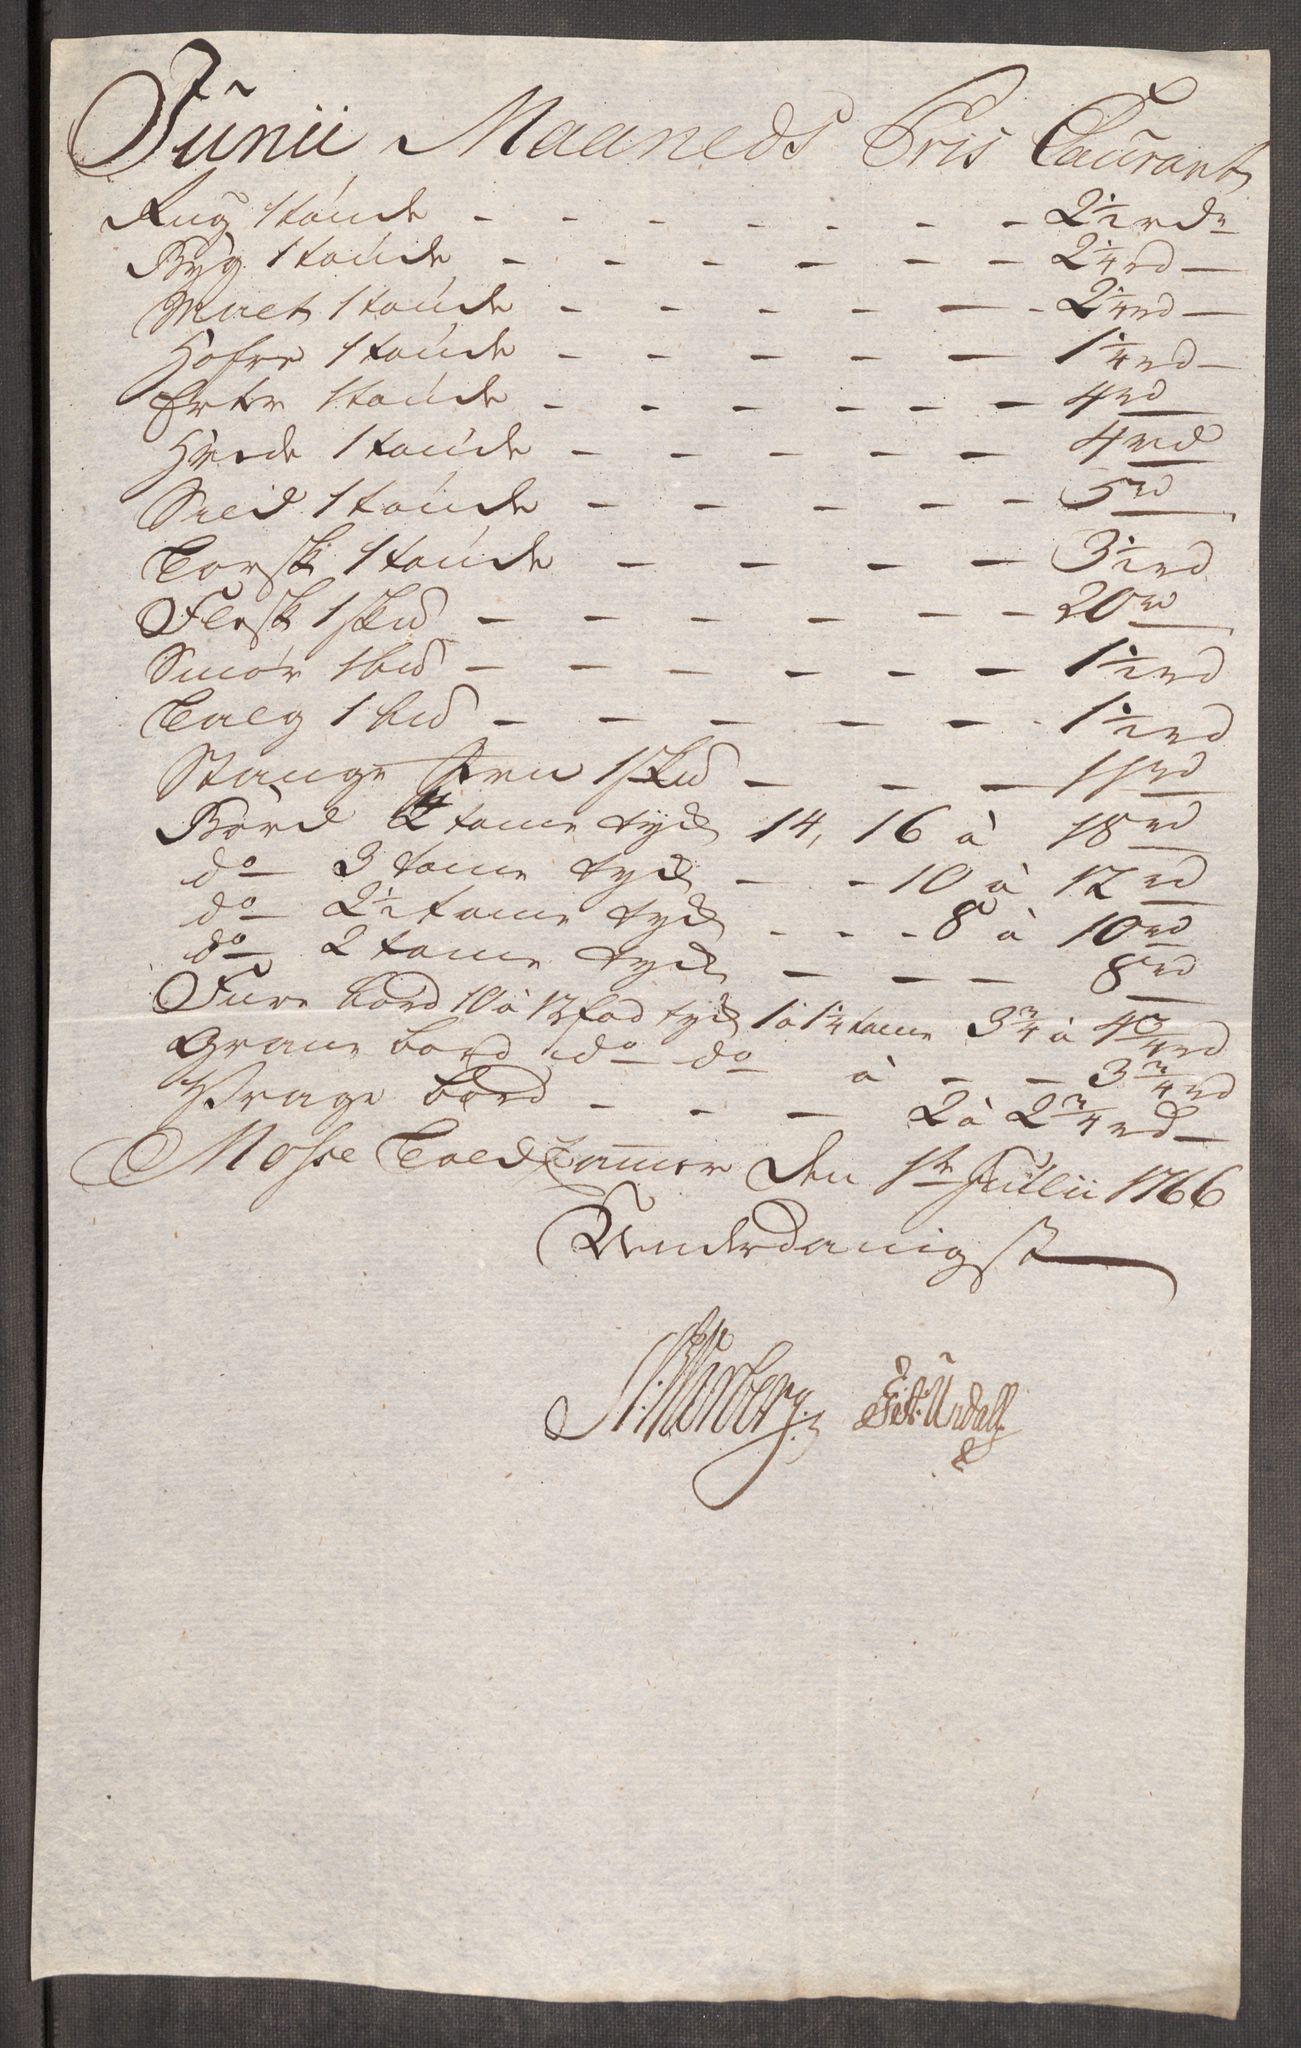 Junii Maaneds Pris Courant
Rug 1 tønde - - - - - - 2 1/2 rdr
Byg 1 tønde - - - - - - 2 1/4 rd -
Malt 1 tønde - - - - - - 2 1/4 rd -
Hafre 1 tønde - - - - - 1 1/4 rd -
Erter 1 tønde - - - - - - 4 rd
Hvede 1 tønde - - - - - 4 rd
Sild 1 tønde - - - - - 5 rd
Torsk 1 tønde - - - - 3 1/2 rd
Flesk 1 skd - - - - - - 20 rd
Smør 1 bd - - - - - - 1 1/2 rd
Talg 1 bd - - - - - - 1 1/2 rd
Stange Jern 1 skd - - - 11 rd
Bord 4 tome tyk 14, 16 à 18 rd
do 3 tome tyk - - 10 à 12 rd
do 2 1/2 tome tyk - - - 8 à 10 rd
do 2 tome tyk - - - 8 rd
Fure bord 10 à 12 fod tyk 1 à 1 1/4 tome 3 3/4 à 4 3/4 rd
Grane bord do do à - - 3 3/4 rd
Vrage bord - - - 2 à 2 3/4 rd -
Mosse Toldkammer den 1te Julii 1766
Underdanigst